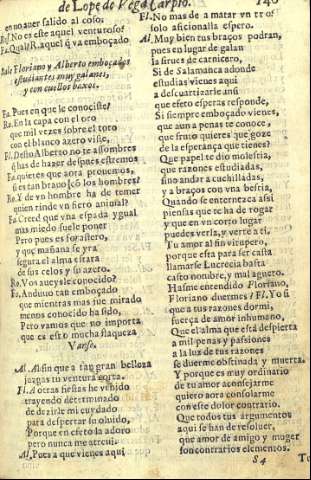 de Lope de Vega Carpio. 140
en no auer salido al coso.
No es este aquel venturoso?
Fa. Qual? R. aquel q̃ va emboçado
Sale Floriano y Alberto emboçados
estudiantes muy galanes,
y con cuellos baxos.
Fa. Pues en que le conociste?
Ro. En la capa con el oro
que mil vezes sobre el toro
con el blanco azero viste,
Fl. Desto Alberto no te assombres
has de hazer despues estremos
Fa. quieres que aora prouemos,
si es tan brauo cõ los hombres?
Ro. Y de vn hombre ha de temer
quien rinde vn fiero animal?
Fa. Creed que vna espada ygual
mas miedo suele poner
Pero pues es forastero,
y que mañana se yra
segura el alma estara
de sus celos y su azero.
Ro. Vos aueysle conocido?
Fa. Anduuo tan emboçado
que mientras mas fue mirado
menos conocido ha sido,
Pero vamos que no importa
que es esto mucha flaqueza
Vanse.
Al. Al fin que a tan gran belleza
juzgas tu ventura corta.
Fl. A otras fiestas he venido
trayendo determinado
de dezirle mi cuydado
para despertar su oluido,
Porque en efeto la adoro
pero nunca me atreui.
Al. Pues a que vienes aqui
Fl. No mas de a matar vn toro
solo aficionalla espero.
Al. Muy bien tus braços podran,
pues en lugar de galan
la sirues de carnicero,
Si de Salamanca adonde
estudias vienes aqui
a descuartizarle ansi
que efeto esperas responde,
Si siempre emboçado vienes,
que aun a penas te conoce
que fruto quieres que goze
de la esperança que tienes?
Que papel te dio molestia,
que razones estudiadas,
sino andar a cuchilladas,
y a braços con vna bestia,
Quando se enternezca assi
piensas que te ha de rogar
y que en vn corto lugar
puedes verla, y verte a ti,
Tu amor al fin vitupero,
porque esta para ser casta
llamarse Lucrecia basta
casto nombre, y mal aguero.
Hasme entendido Floriano,
Floriano duermes? Fl. Y o si
que a tus razones dormi,
fuerça de amor inhumano,
Que el alma que està despierta
a mil penas y passiones
a la luz de tus razones
se duerme obstinada y muerta.
Y porque es muy ordinario
de tu amor aconsejarme
quiero aora consolarme
con este dolor contrario.
Que todos tus argumentos
aqui se han de resoluer,
que amor de amigo y muger
son contrarios elementos.
S 4